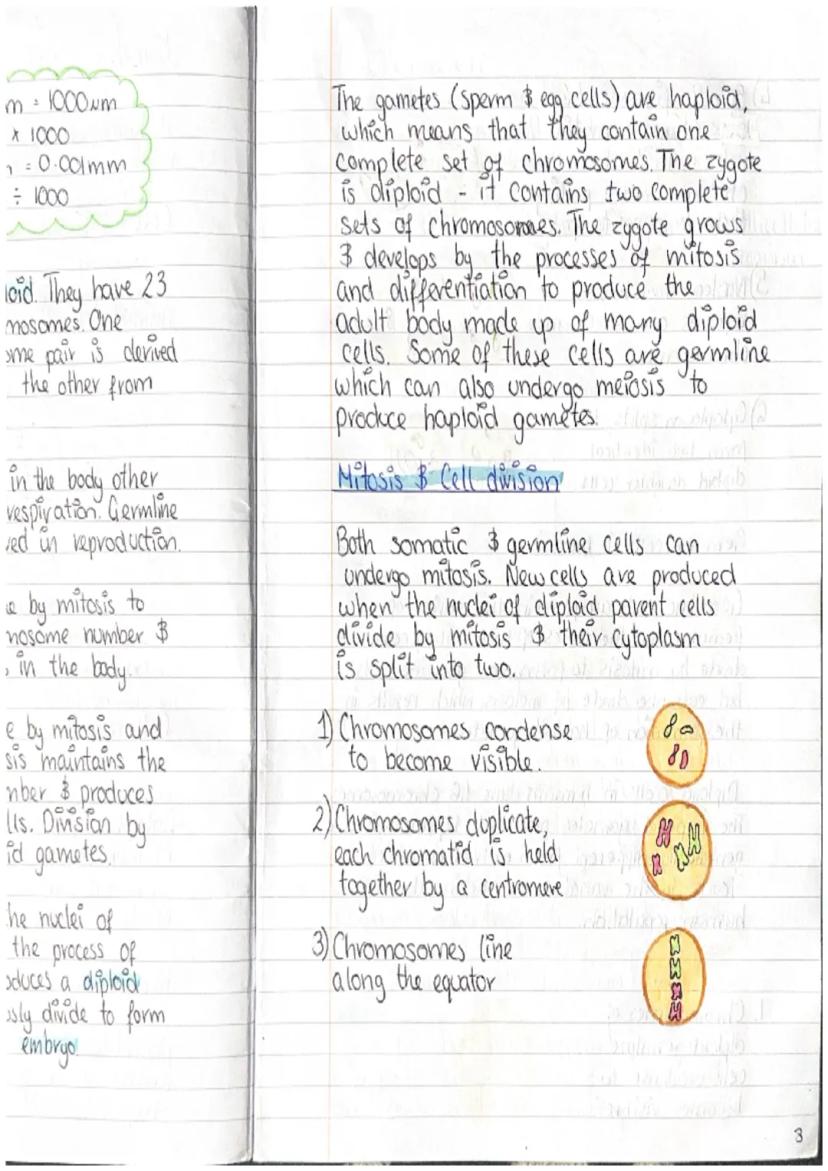 m = 1000μm
x 1000
= 0.001mm
÷ 1000
loid. They have 23
mosomes. One
ome pair is derived
the other from
in the body other
respiration. Germline
ed in reproduction.
e by mitosis to
mosome number &
in the body.
e by mitosis and
sis maintains the
mber & produces
lls. Division by
id gametes.
he nuclei of
the process of
oduces a diploid
ssly divide to form
embryo.
The gametes (sperm & egg cells) are haploid,
which means that they contain one
complete set of chromosomes. The zygote
is diploid - it contains two complete
sets of chromosomes. The zygote grows
& develops by the processes of mitosis
and differentiation to produce the
adult body made up of many diploid
cells. Some of these cells are germline
which can also undergo meiosis to
produce haploid gametes.
Mitosis & Cell division
Both somatic & germline cells can
undergo mitosis. New cells are produced
when the nuclei of diploid parent cells
divide by mitosis & their cytoplasm
is split into two.
1) Chromosomes condense
to become visible.
2) Chromosomes duplicate,
each chromatid is held
together by a centromere
3) Chromosomes line
along the equator
3